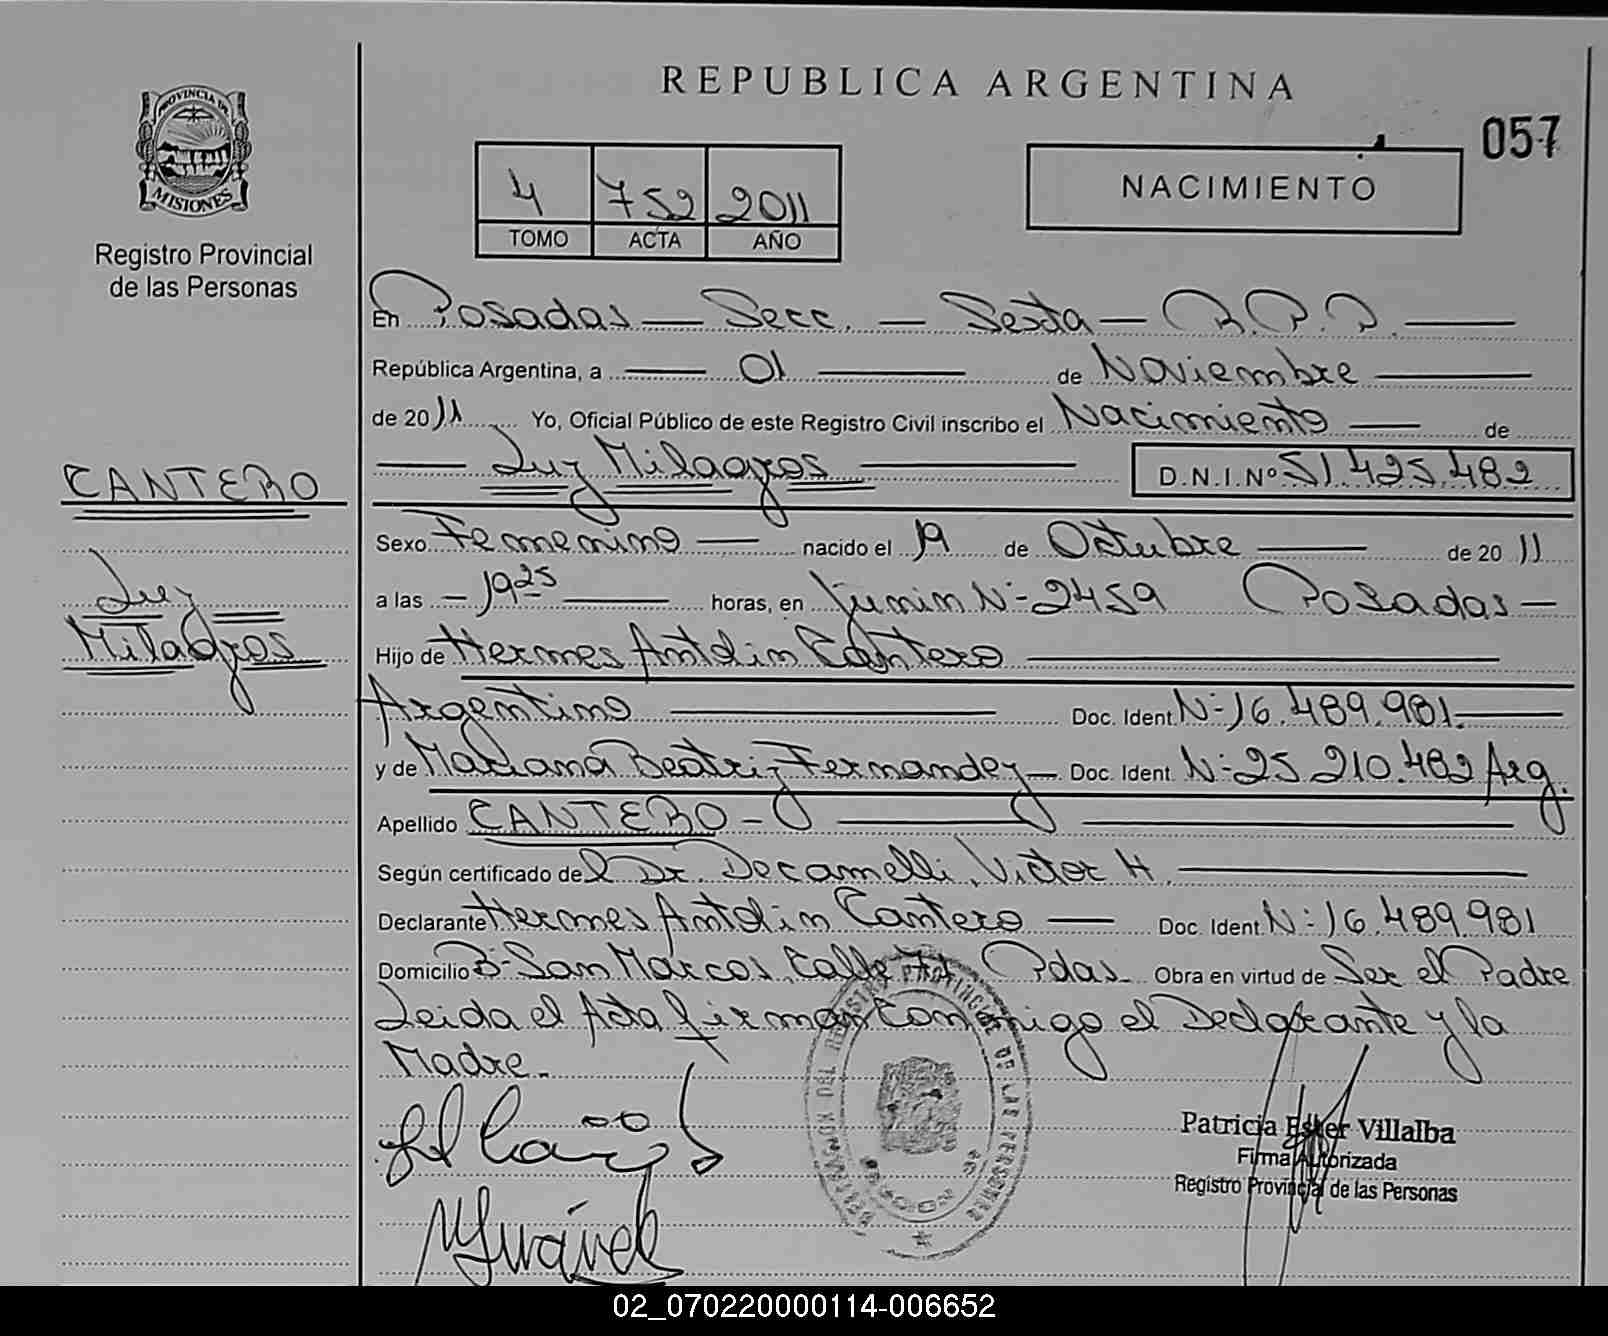 REPUBLICA ARGENTINA
057
PROVINCIA DE
MISIONES
Registro Provincial
de las Personas
4 752 2011
TOMO ACTA AÑO
NACIMIENTO
En Posadas — Secc. — Sexta — R.P.P. —
República Argentina, a — 01 — de Noviembre —
de 2011 Yo, Oficial Público de este Registro Civil inscribo el Nacimiento — de
— Luz Milagros — D.N.I.Nº 51.425.482
CANTERO
Luz
Milagros
Sexo Femenino — nacido el 19 de Octubre — de 2011
a las — 19 25 — horas, en Junin Nº 2459 Posadas —
Hijo de Hermes Antolin Cantero —
Argentino — Doc. Ident Nº 16.489.981. —
y de Mariana Beatriz Fernandez — Doc. Ident. Nº 25.210.482 Arg.
Apellido CANTERO — —
Según certificado del Dr. Decamelli, Victor H. —
Declarante Hermes Antolin Cantero — Doc. Ident Nº 16.489.981
Domicilio Bº San Marcos, Calle Pdas. Obra en virtud de Ser el Padre
Leida el Acta firman Conmigo el Declarante y la
Madre.
Patricia Ester Villalba
Firma Autorizada
Registro Provincial de las Personas
02_070220000114-006652